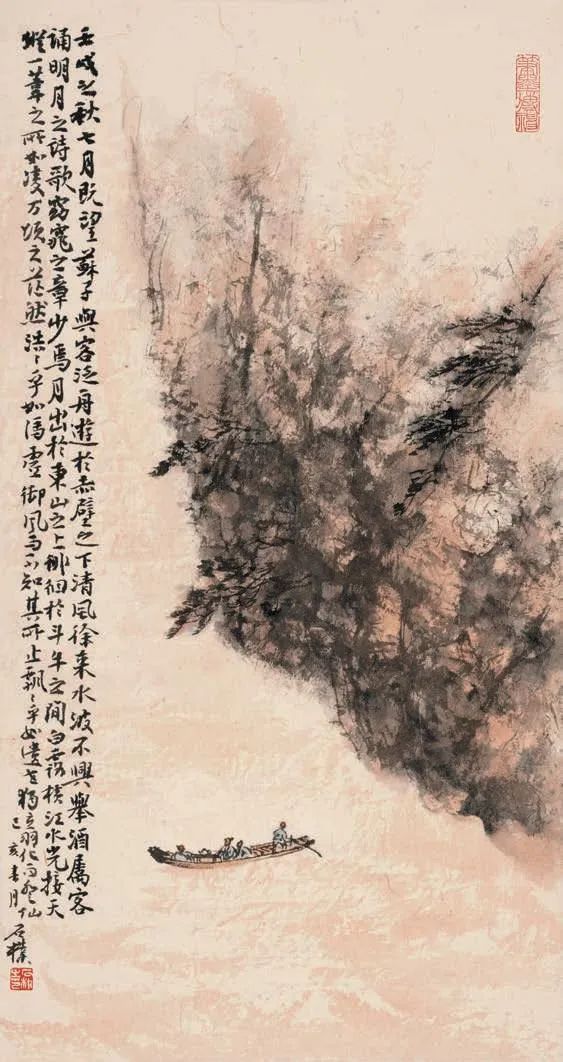 壬戌之秋七月既望蘇子與客泛舟遊於赤壁之下清風徐来水波不興舉酒屬客
誦明月之詩歌窈窕之章少焉月出於東山之上徘徊於斗牛之間白露横江水光接天
縱一葦之所如凌万頃之茫然浩〻乎如馮虚御風而不知其所止飄〻乎如遺世獨立羽化而登仙
己亥春月
石樸